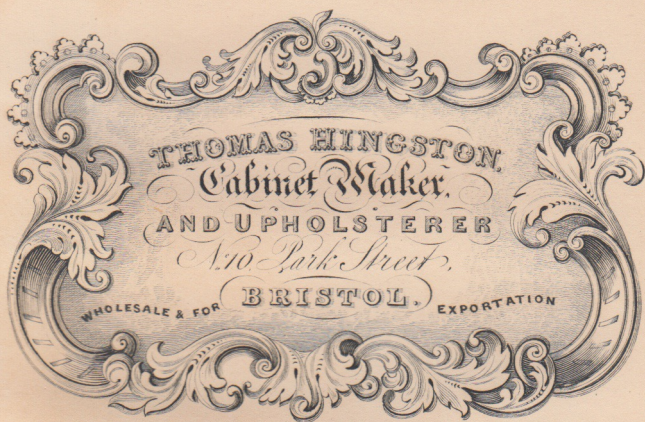 THOMAS HINGSTON,
Cabinet Maker,
AND UPHOLSTERER
No. 10 Park Street,
WHOLESALE & FOR BRISTOL, EXPORTATION